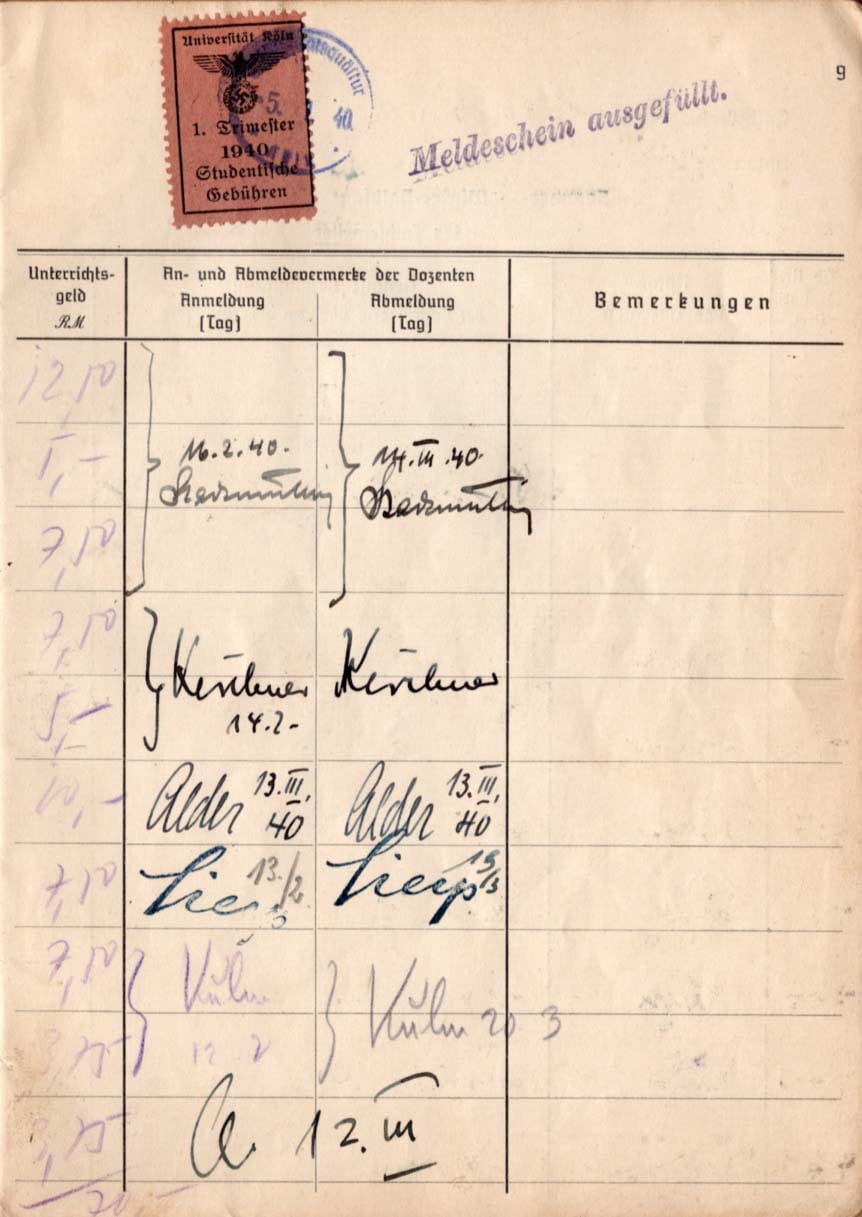 9
Universität Köln
1. Trimester
1940
Studentische
Gebühren
5. 40
Meldeschein ausgefüllt.
Unterrichts-
geld
RM
An- und Abmeldevermerke der Dozenten
Anmeldung
(Tag)
Abmeldung
(Tag)
Bemerkungen
12,50
16.2.40. 14.III.40.
5,-
7,50
7,50
Kirchner Kirchner
5,-
14.2-
Alder 13.III.40 Alder 13.III.40
7,50
13./2 19/3
7,50
Kuhn Kuhn 20 3
12 2
3,75
12.III